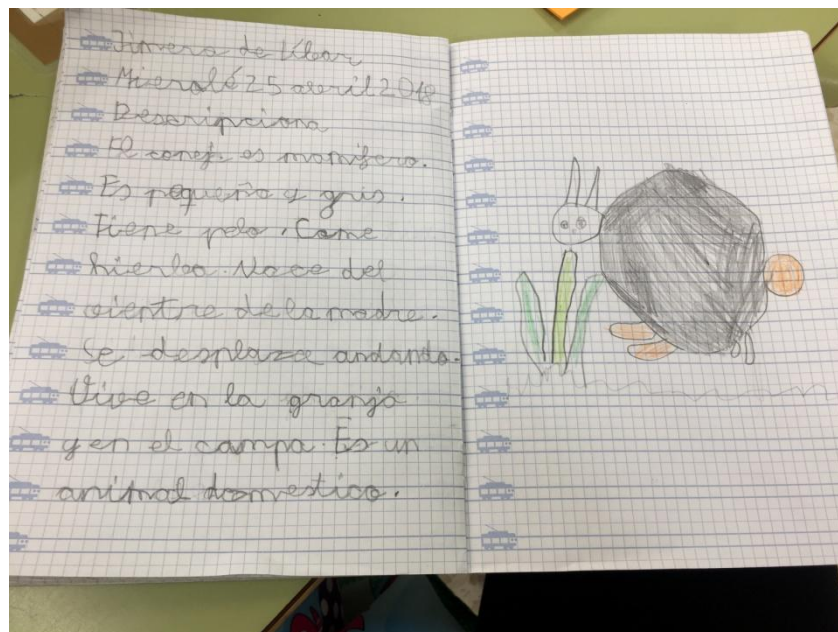 Jimera de Líbar
Miercolé 25 abril 2018
Descripciona
El conej. es momifero.
Es pequeño y gris.
Tiene pelo. Come
hierba. Nace del
vientre de la madre.
Se desplaza andando.
Vive en la granja
y en el campa. Es un
animal domestico.